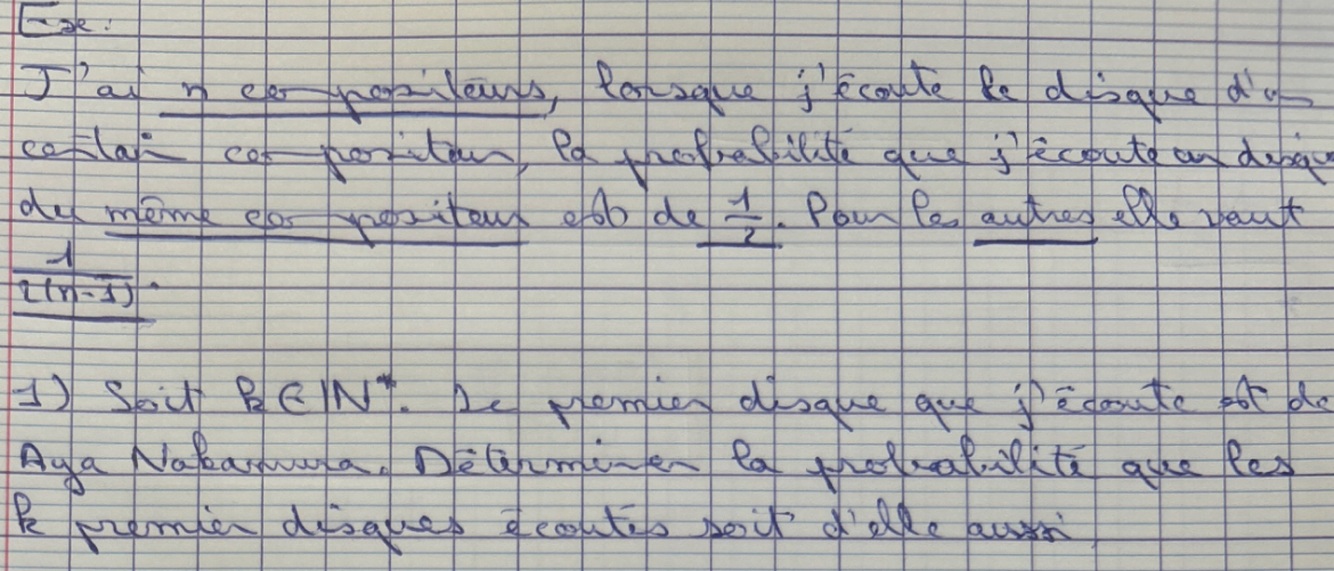 Exe:
J'ai n compositeurs, lorsque j'écoute le disque d'un
certain compositeur, la probabilité que j'écoute un disque
du même compositeur est de 1/2. Pour les autres elle vaut
1/(2(n-1)).
1) Soit k ∈ ℕ*. Le premier disque que j'écoute est de
Aya Nakamura. Déterminer la probabilité que les
k premier disques écoutés soit d'elle aussi